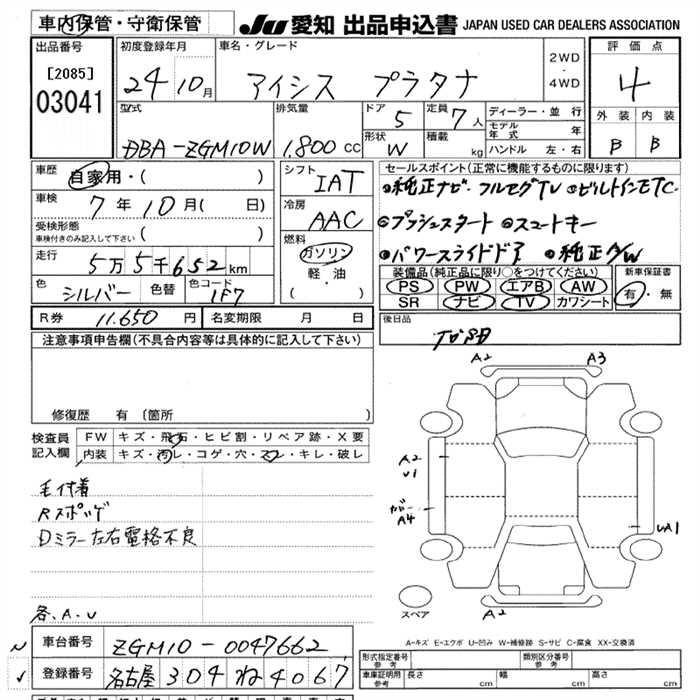 車内保管・守衛保管
JU 愛知 出品申込書 JAPAN USED CAR DEALERS ASSOCIATION
出品番号
[2085]
03041
初度登録年月
24 10月
車名・グレード
アイシス プラタナ
2WD
・
4WD
評価点
4
型式
DBA-ZGM10W
排気量
1.800 cc
ドア
5
定員
7人
形状
W
積載
kg
ディーラー・並行
モデル年式 年
ハンドル 左・右
外装 内装
B B
車歴
自家用・( )
車検
7年10月( 日)
受検形態
車検付きのみ記入して下さい ( )
走行
5万5千652km
色
シルバー
色替
色コード
1F7
シフト
IAT
冷房
AAC
燃料
ガソリン
軽・油
( )
セールスポイント(正常に機能するものに限ります)
◎純正ナビ・フルセグTV ◎ビルトインETC
◎プッシュスタート ◎スマートキー
◎パワースライドドア ◎純正AW
装備品(純正品に限り○をつけてください)
PS PW エアB AW
SR ナビ TV カワシート
新車保証書
有・無
R券 11.650円
名変期限 月 日
後日品
注意事項申告欄(不具合内容等は具体的に記入して下さい)
修復歴 有 〔箇所 〕
検査員記入欄
FW キズ・飛石・ヒビ割・リペア跡・X要
内装 キズ・汚レ・コゲ・穴・スレ・キレ・破レ
毛付着
Rスポッゲ
Dミラー左右電格不良
各、A、U
A2 A3
A2
U1
ガラー
A4
UA1
スペア
A2
A-キズ E-エクボ U-凹み W-補修跡 S-サビ C-腐食 XX-交換済
車台番号 ZGM10-0047662
登録番号 名古屋 304 ね 4067
形式指定番号
参考
類別区分番号
参考
車庫証明用
参考
長さ cm 幅 cm 高さ cm